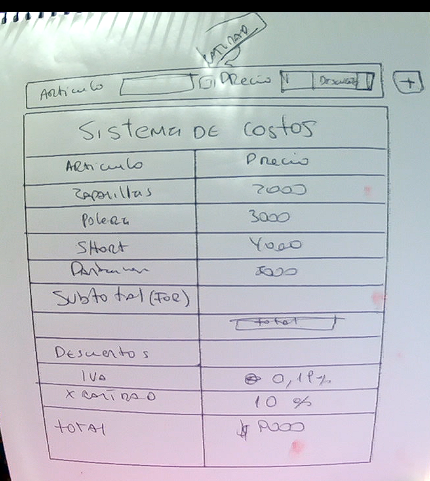 Cantidad
Articulo Precio Descuento +
Sistema de costos
Articulo Precio
Zapatillas 2000
Polera 3000
Short 4000
5000
Subtotal (FOR)
total
Descuentos
IVA 0,19%
X cantidad 10 %
total $